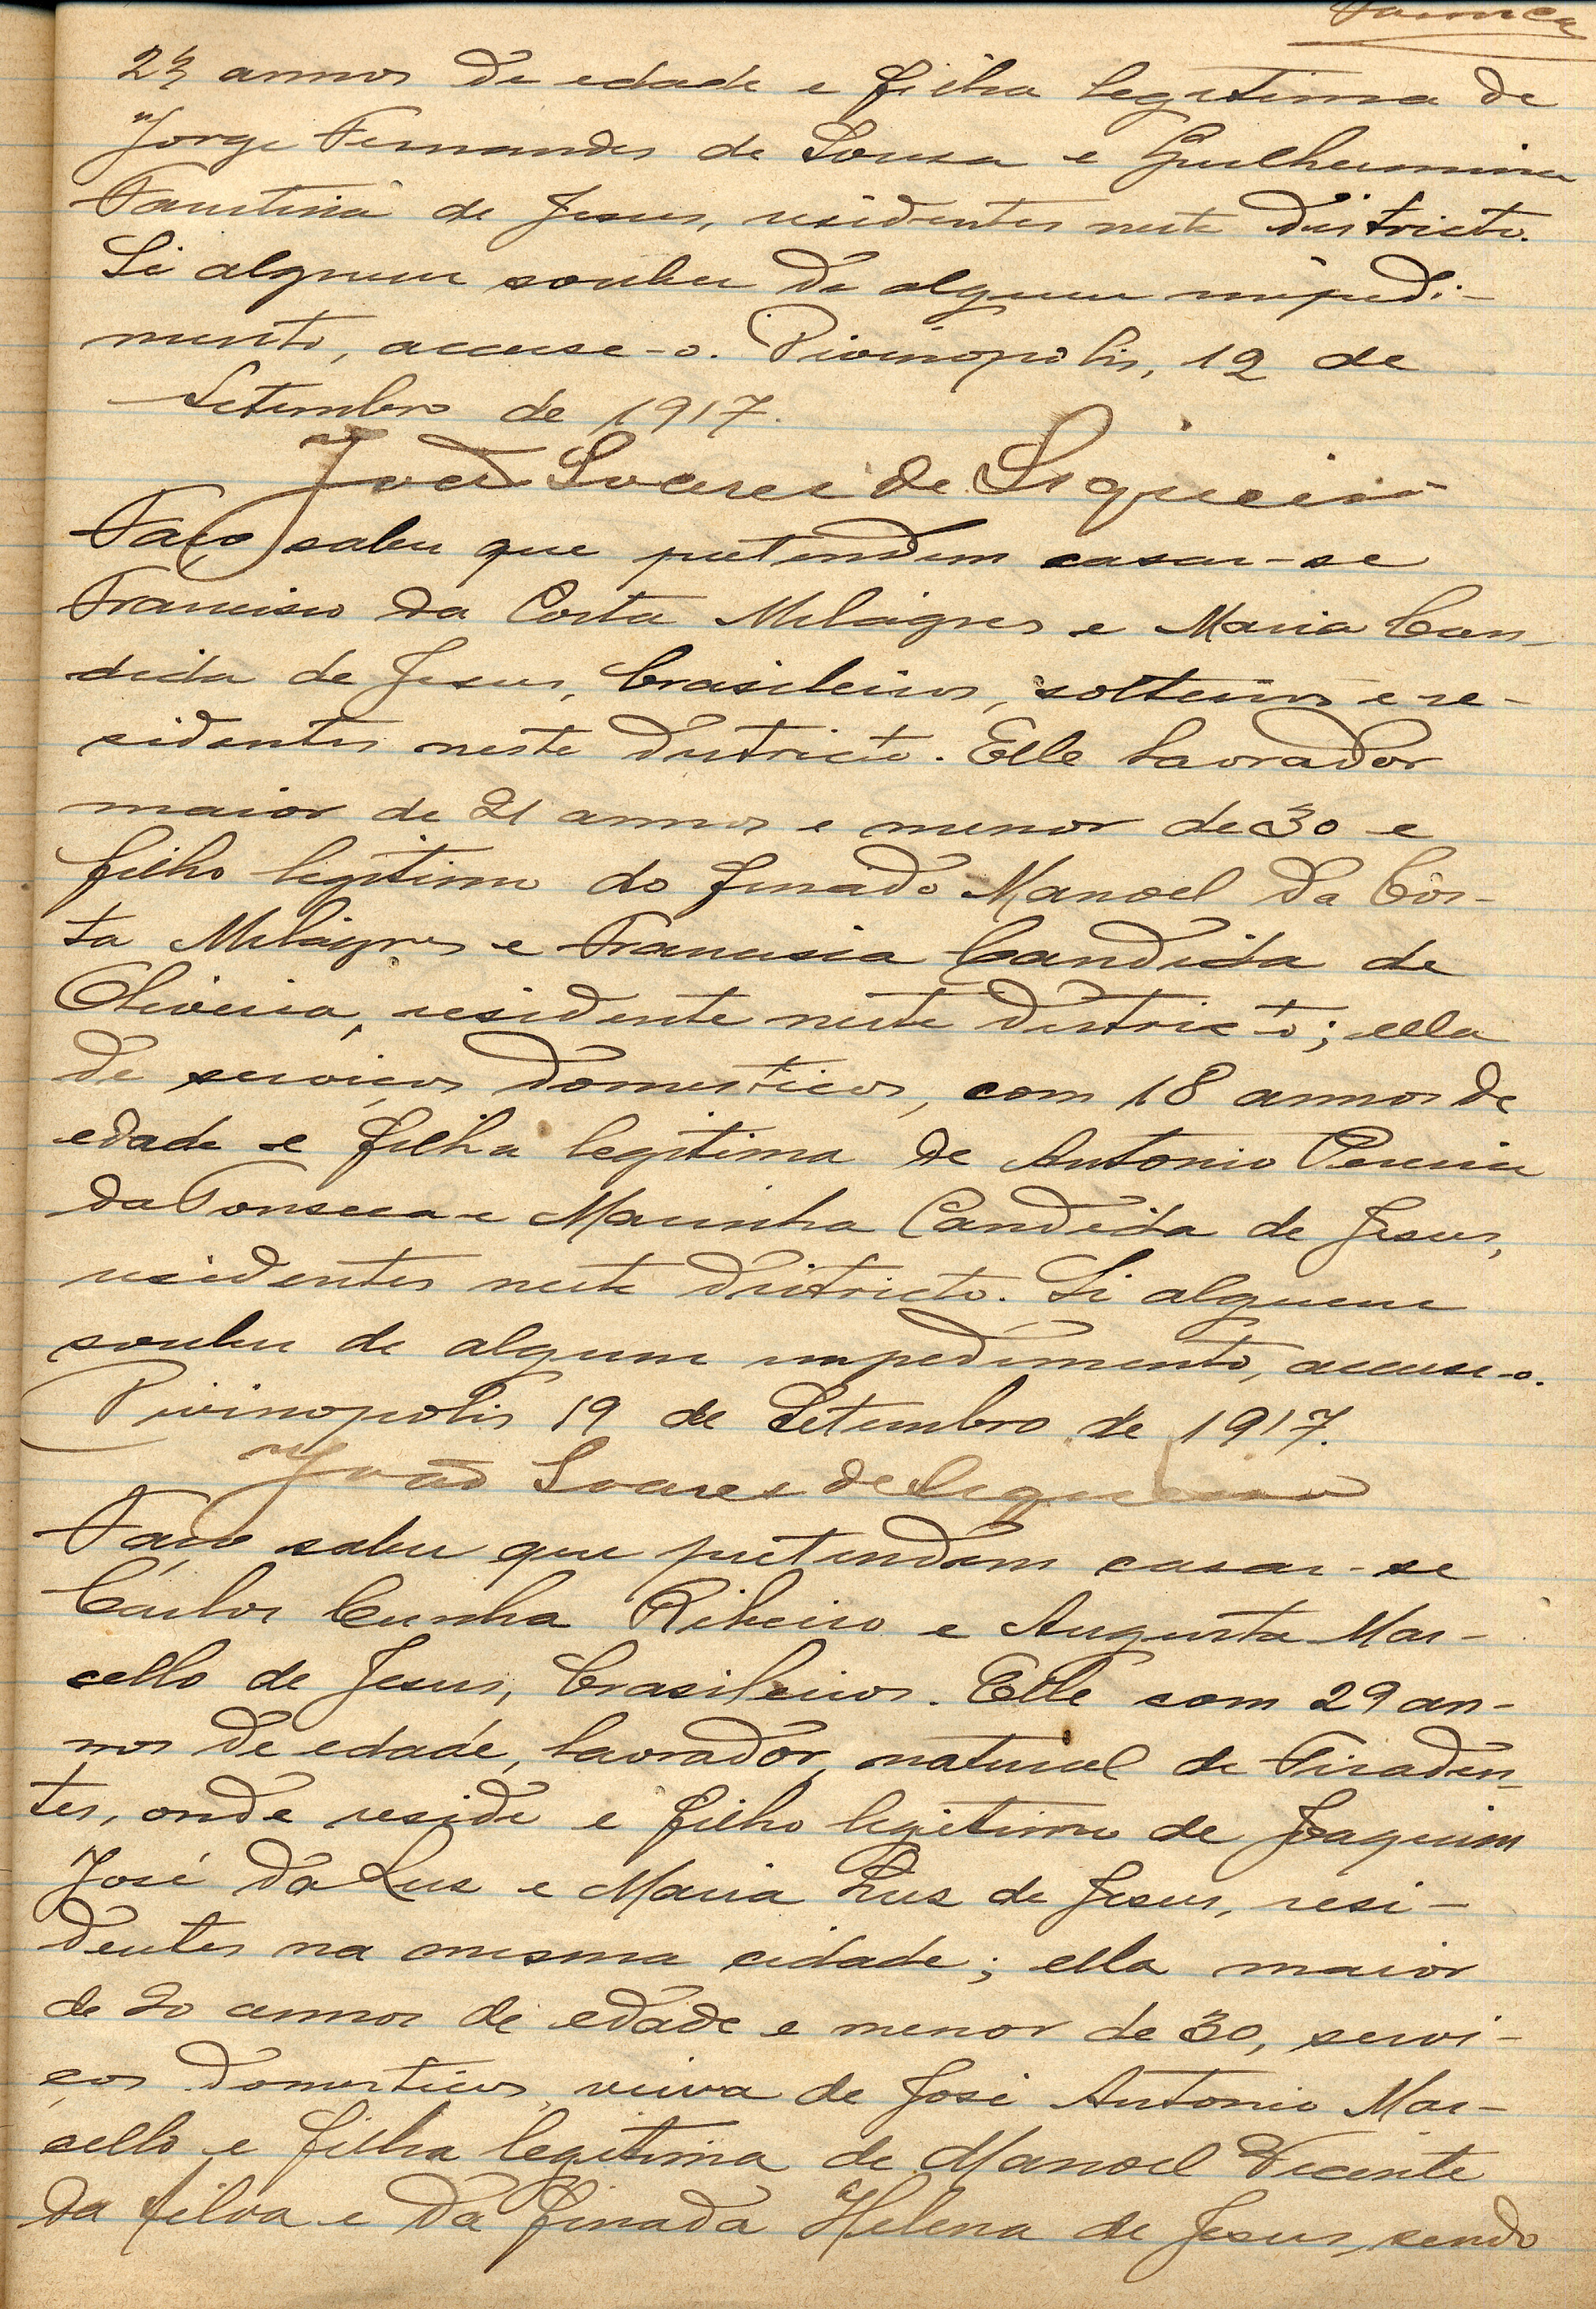 23 annos de edade e filha legitima de
Jorge Fernandes de Sousa e Guilhermina
Faustina de Jesus, residentes neste districto.
Si alguem souber de algum impedi-
mento, accuse-o. Divinopolis, 12 de
Setembro de 1917.
João Soares de Siqueira
Faço saber que pretendem casar-se
Francisco da Costa Milagres e Maria Can-
dida de Jesus, brasileiros, solteiros e re-
sidentes neste districto. Elle lavrador
maior de 21 annos e menor de 30 e
filho legitimo do finado Manoel da Cos-
ta Milagres e Francisca Candida de
Oliveira, residente neste districto; ella
de serviços domesticos, com 18 annos de
edade e filha legitima de Antonio Pereira
da Fonseca e Marinha Candida de Jesus,
residentes neste districto. Si alguem
souber de algum impedimento, accuse-o.
Divinopolis 19 de Setembro de 1917.
João Soares de Siqueira
Faço saber que pretendem casar-se
Carlos Cunha Ribeiro e Augusta Mar-
cello de Jesus, brasileiros. Elle com 29 an-
nos de edade, lavrador, natural de Tiraden-
tes, onde reside e filho legitimo de Joaquim
José da Luz e Maria Luz de Jesus, resi-
dentes na mesma cidade; ella maior
de 20 annos de edade e menor de 30, servi-
ços domesticos, viuva de José Antonio Mar-
cello e filha legitima de Manoel Vicente
da Silva e da finada Helena de Jesus, sendo